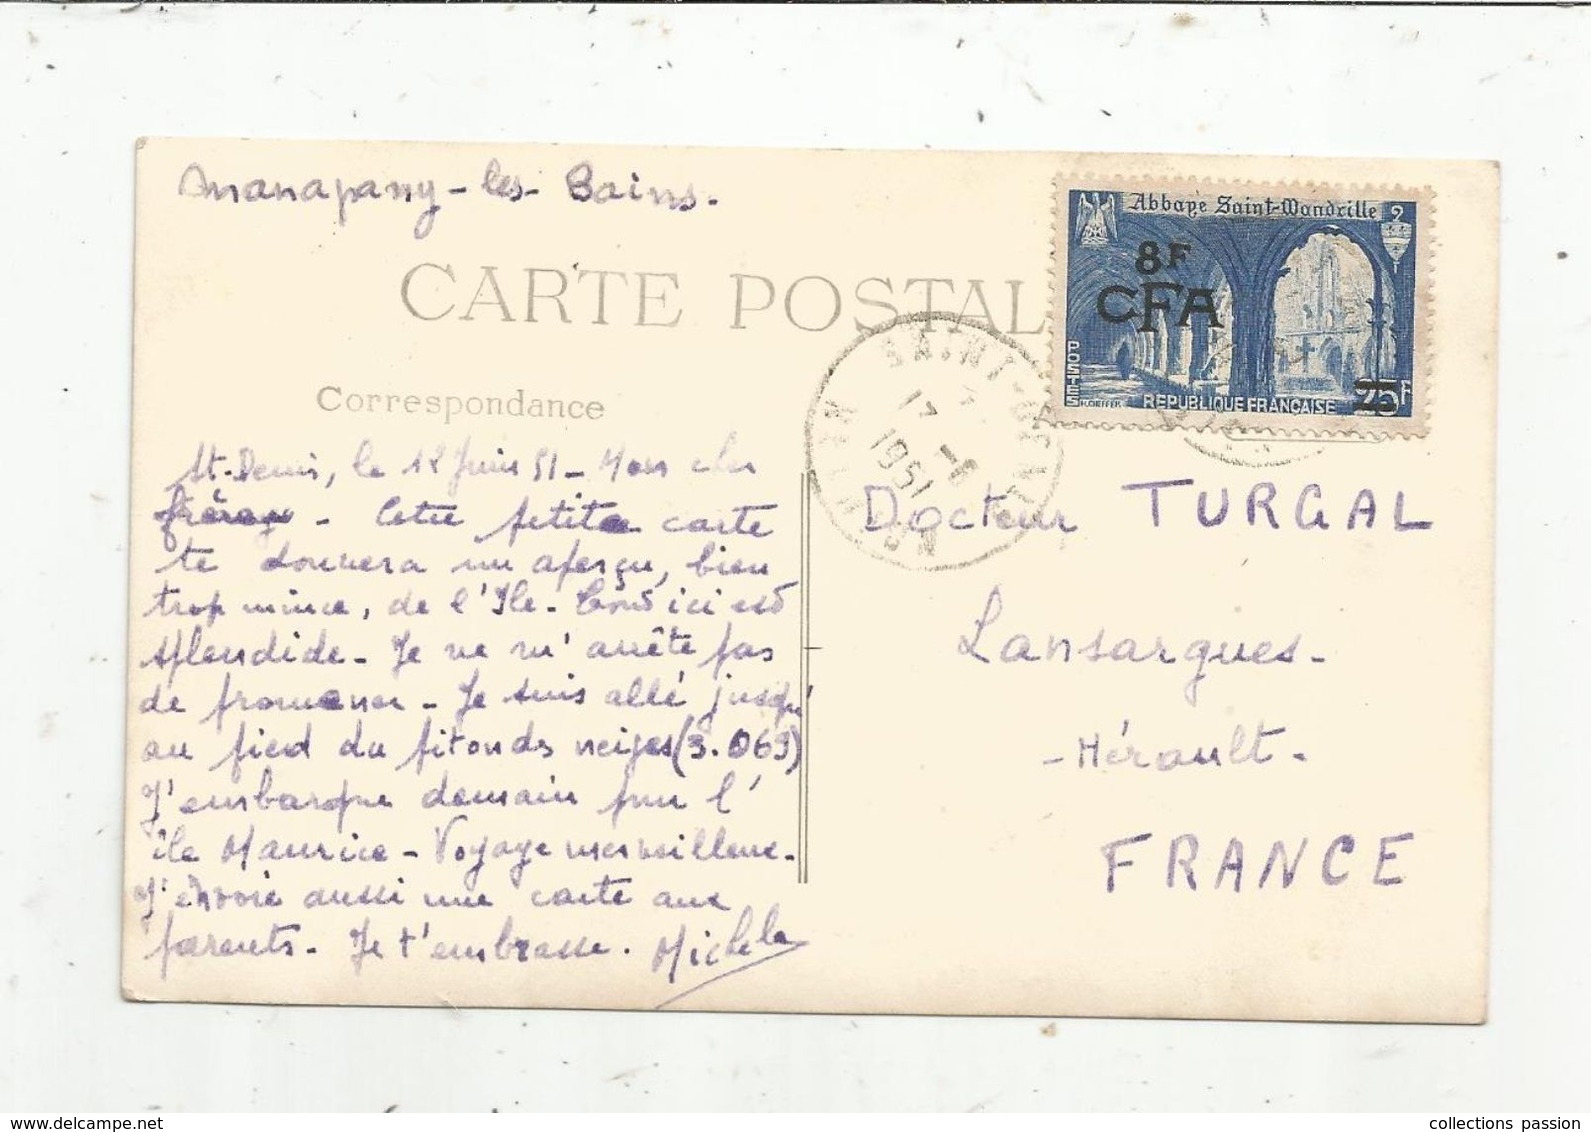 Manapany-les-Bains.
CARTE POSTAL
Correspondance
Abbaye Saint-Wandrille
8F
CFA
POSTES
REPUBLIQUE FRANÇAISE
25F
SAINT-DENIS
17 -6
1951
REUNION
St-Denis, le 12 Juin 51 - Mon cher
- Cette petite carte
te donnera un aperçu, bien
trop mince, de l'Ile - Tout ici est
splendide - Je ne m'arrête pas
de promener - Je suis allé jusqu'
au pied du piton ds neiges (3.069)
J'embarque demain pour l'
île Maurice - Voyage merveilleux.
J'envoie aussi une carte aux
parents - Je t'embrasse.
Docteur TURGAL
Lansargues -
- Hérault -
FRANCE
collections passion